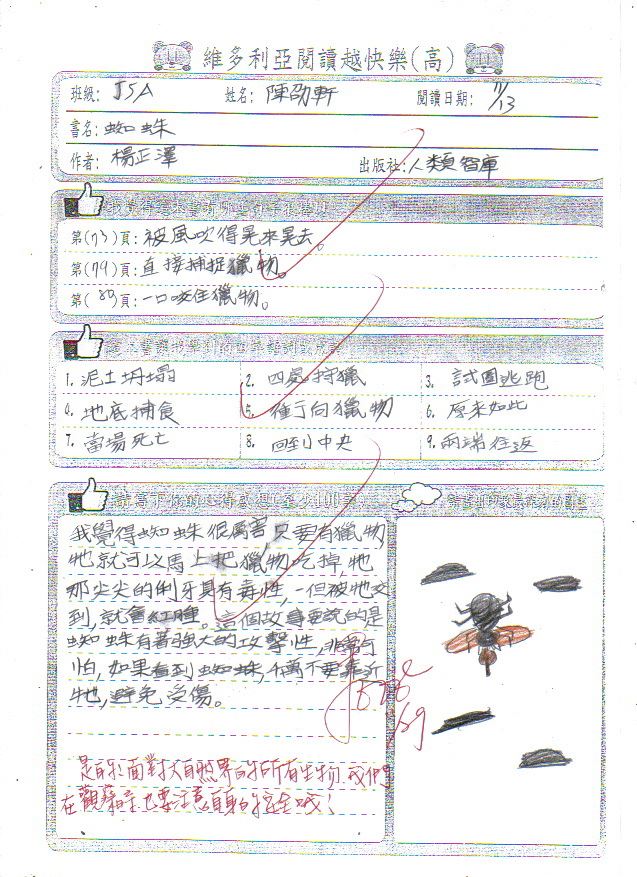 維多利亞閱讀越快樂(高)
班級: J5A 姓名: 陳劭軒 閱讀日期: 11/13
書名: 蜘蛛
作者: 楊正澤 出版社: 人類智庫
第(73)頁: 被風吹得晃來晃去。
第(79)頁: 直接捕捉獵物。
第(89)頁: 一口咬住獵物。
1. 泥土坍塌 2. 四處狩獵 3. 試圖逃跑
4. 地底捕食 5. 衝向獵物 6. 原來如此
7. 當場死亡 8. 回到中央 9. 兩端往返
請寫下你的心得感想(至少100字)
我覺得蜘蛛很厲害,只要有獵物,
牠就可以馬上把獵物吃掉,牠
那尖尖的俐牙具有毒性,一但被牠咬
到,就會紅腫。這個故事要說的是
蜘蛛有著強大的攻擊性,非常可
怕,如果看到蜘蛛,千萬不要靠近
牠,避免受傷。
是的!面對大自然界的所有生物,我們
在觀察時也要注意自身的安全哦!